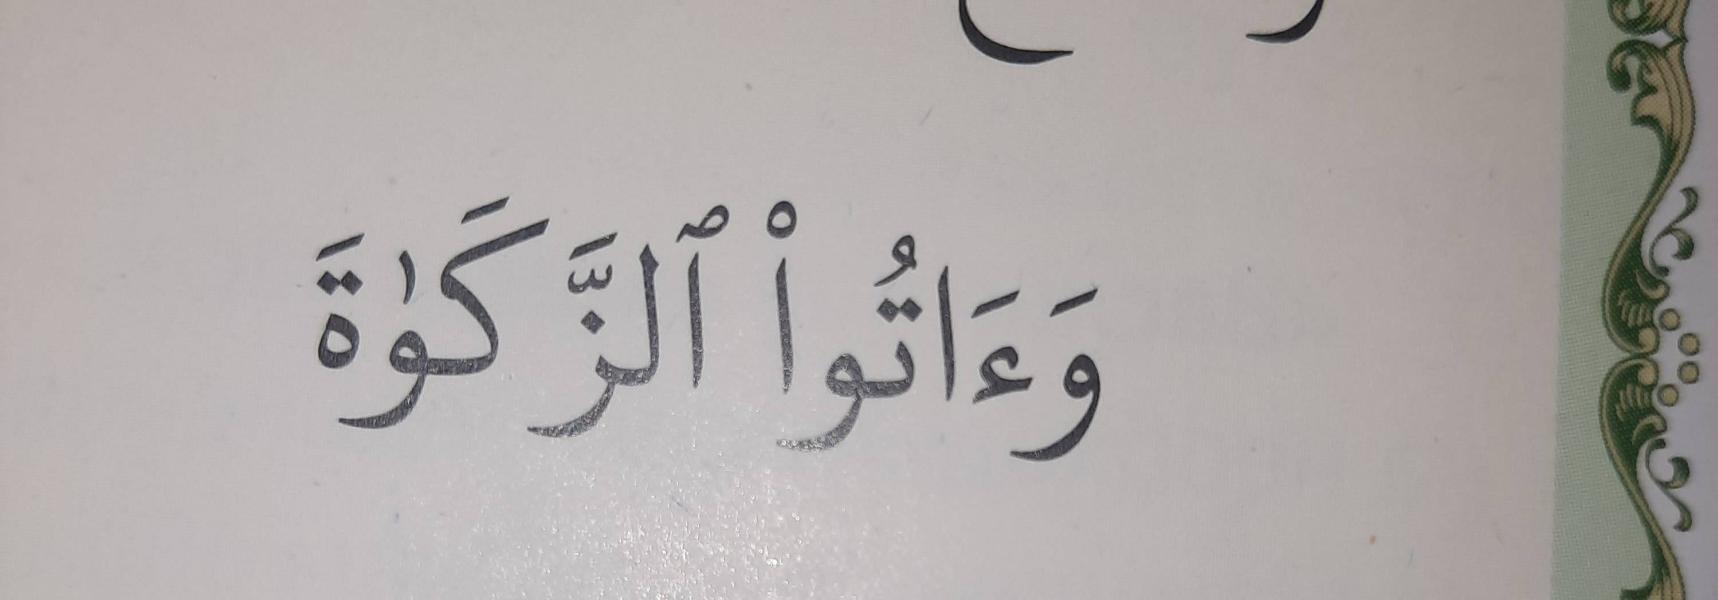 وَءَاتُوا۟ ٱلزَّكَوٰةَ